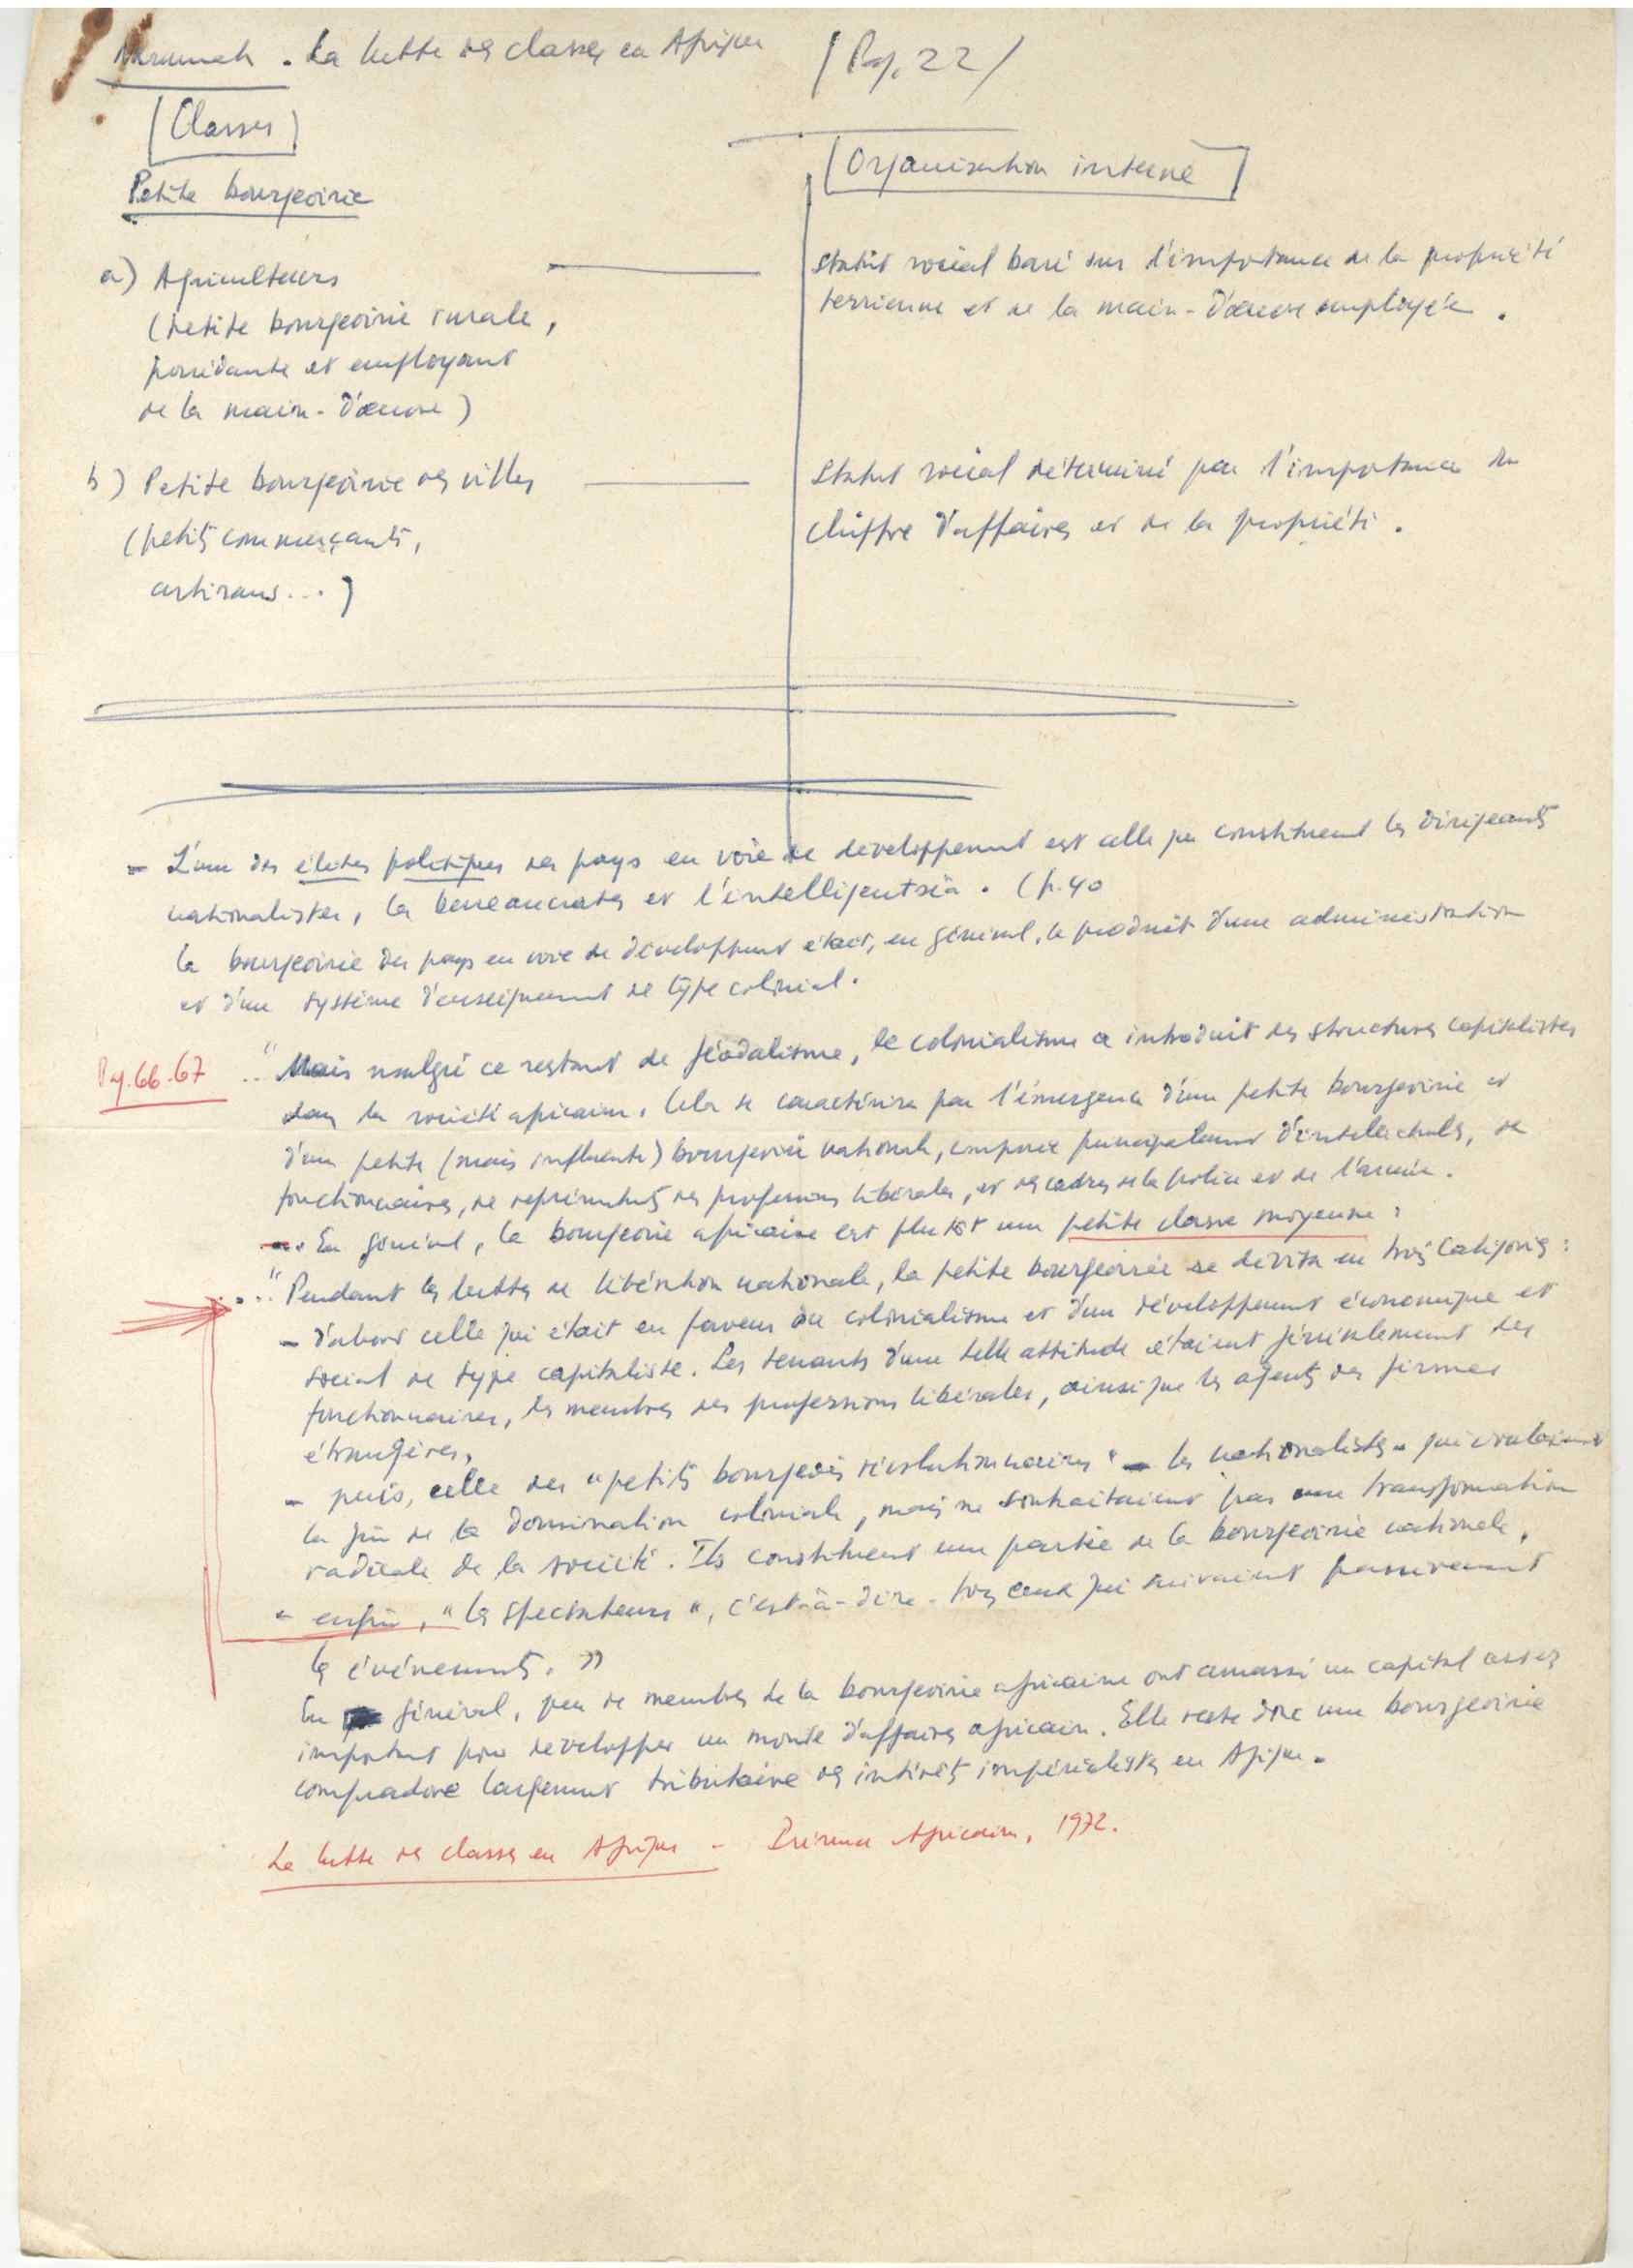 Nkrumah - La lutte des classes en Afrique / Pag. 22 /
[Classes]
[Organisation interne]
Petite bourgeoisie
a) Agriculteurs
(petite bourgeoisie rurale,
possédante et employant
de la main-d'œuvre)
Statut social basé sur l'importance de la propriété
terrienne et de la main-d'œuvre employée.
b) Petite bourgeoisie des villes
(petits commerçants,
artisans...)
Statut social déterminé par l'importance du
chiffre d'affaires et de la propriété.
- L'une des élites politiques des pays en voie de developpement est celle que constituent les dirigeants
nationalistes, les bureaucrates et l'intelligentsia. (p. 40
la bourgeoisie des pays en voie de développement était, en général, le produit d'une administration
et d'un système d'enseignement de type colonial.
Pag. 66-67 ..." Mais malgré ce restant de féodalisme, le colonialisme a introduit des structures capitalistes
dans la société africaine. Cela se caractérise par l'émergence d'une petite bourgeoisie et
d'une petite (mais influente) bourgeoisie nationale, composée principalement d'intellectuels, de
fonctionnaires, de représentants des professions libérales, et des cadres de la police et de l'armée.
... En général, la bourgeoisie africaine est plutôt une petite classe moyenne;
..." Pendant les luttes de libération nationale, la petite bourgeoisie se divisa en trois catégories:
- d'abord celle qui était en faveur du colonialisme et d'un développement économique et
social de type capitaliste. Les tenants d'une telle attitude étaient généralement des
fonctionnaires, des membres des professions libérales, ainsi que les agents des firmes
étrangères,
- puis, celle des "petits bourgeois révolutionnaires" - les nationalistes - qui voulaient
la fin de la domination coloniale, mais ne souhaitaient pas une transformation
radicale de la société. Ils constituent une partie de la bourgeoisie nationale,
- enfin, "les spectateurs", c'est-à-dire - tous ceux qui suivaient passivement
les événements. »
En général, peu de membres de la bourgeoisie africaine ont amassé un capital assez
important pour developper un monde d'affaires africain. Elle reste donc une bourgeoisie
compradore largement tributaire des intérêts impérialistes en Afrique.
La lutte des classes en Afrique - Présence Africaine, 1972.